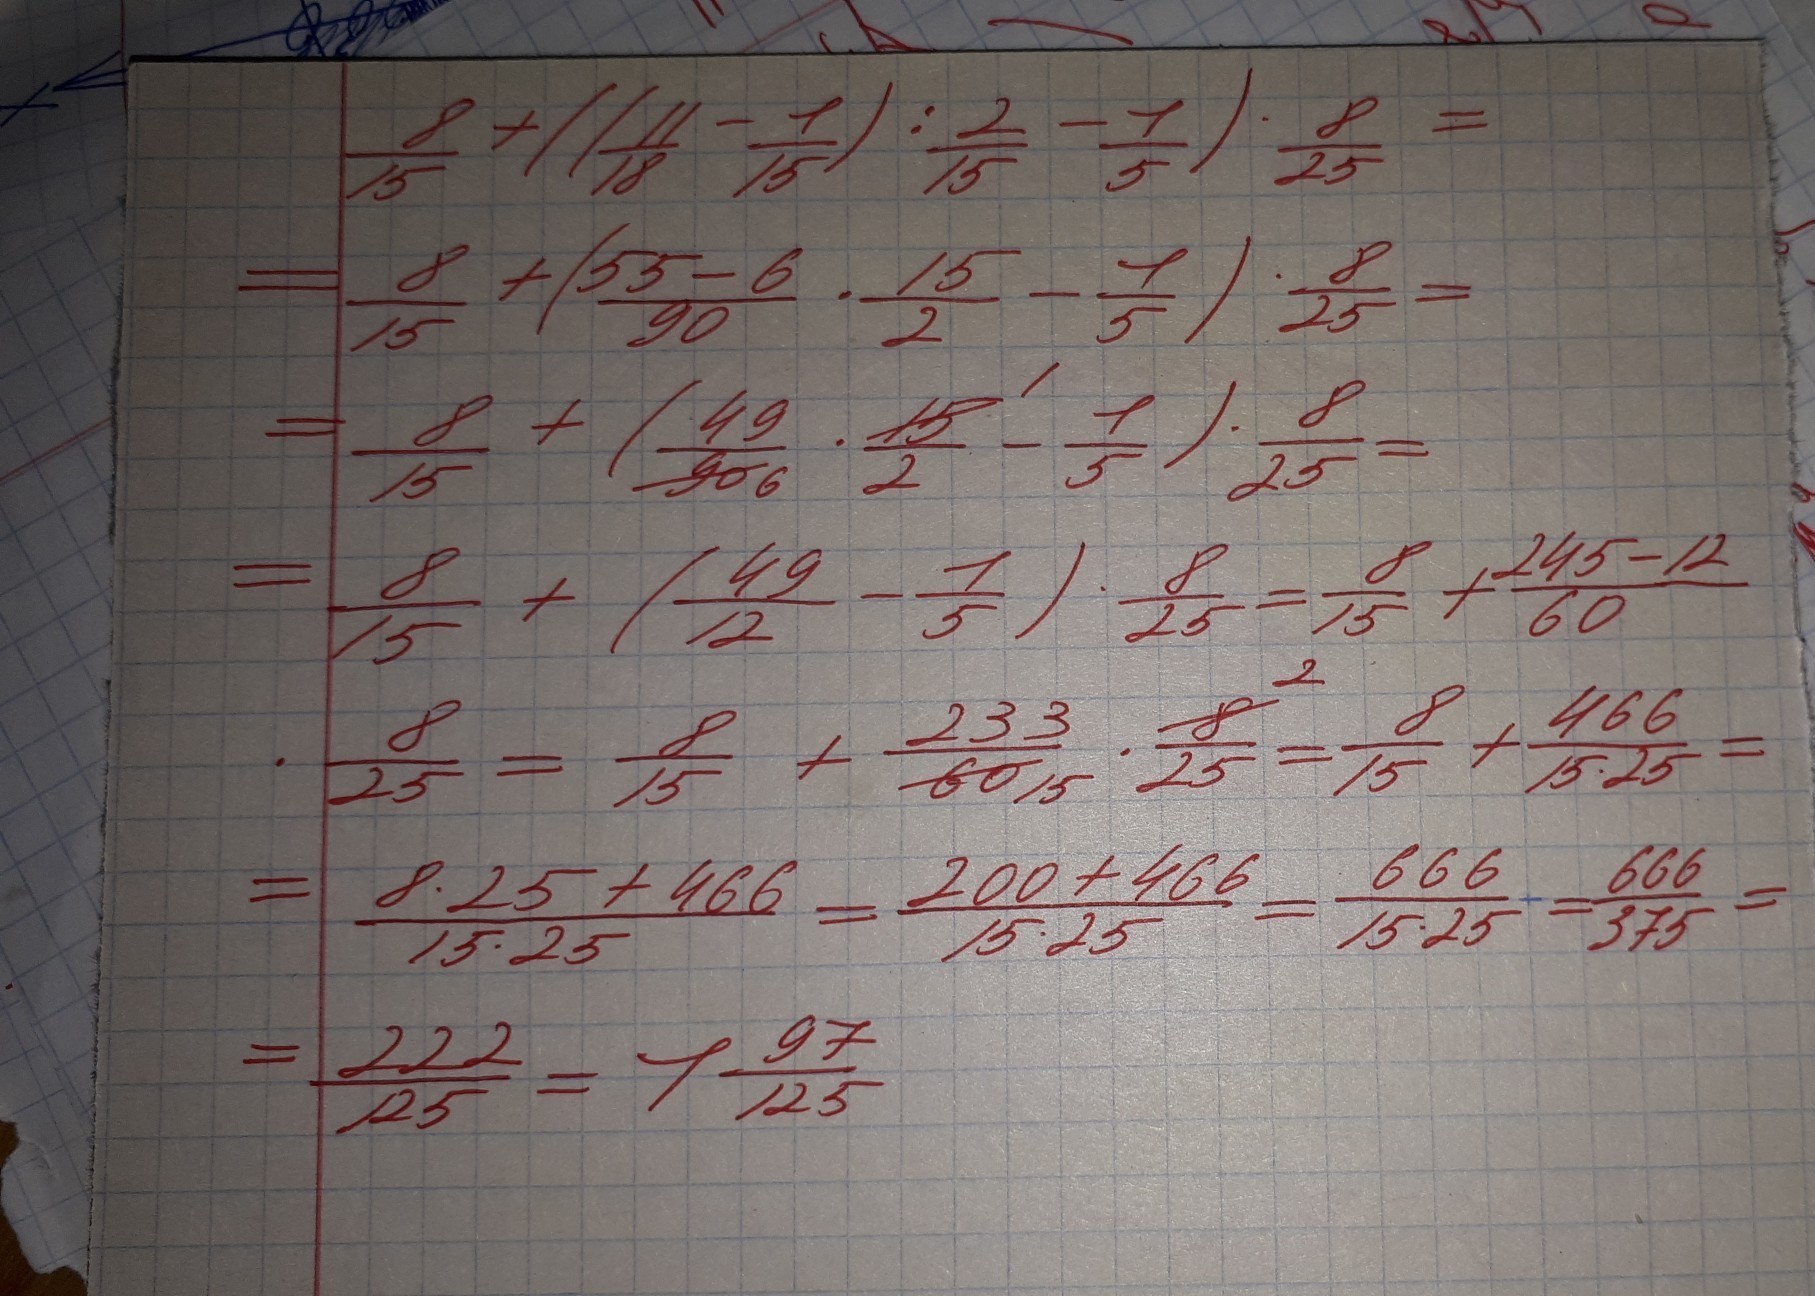 8/15 + ((11/18 - 1/15) : 2/15 - 1/5) · 8/25 =
= 8/15 + (55-6/90 · 15/2 - 1/5) · 8/25 =
= 8/15 + (49/90 6 · 15 1/2 - 1/5) · 8/25 =
= 8/15 + (49/12 - 1/5) · 8/25 = 8/15 + 245-12/60
· 8/25 = 8/15 + 233/60 15 · 8 2/25 = 8/15 + 466/15·25 =
= 8·25+466/15·25 = 200+466/15·25 = 666/15·25 = 666/375 =
= 222/125 = 1 97/125